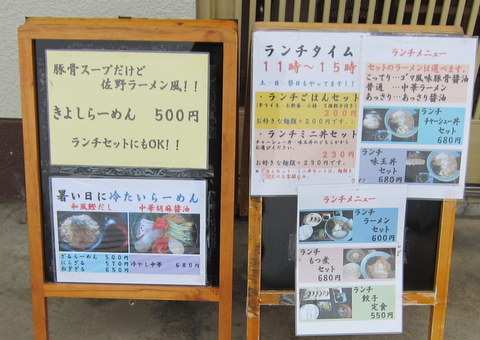 豚骨スープだけど
佐野ラーメン風！！
きよしらーめん 500円
ランチセットにもOK！！
暑い日に冷たいらーめん
和風鰹だし
中華胡麻醤油
ざるらーめん 500
にらざる 570
ねぎざる 650
冷やし中華 680円
ランチタイム
11時～15時
土・日・祭日もやってます！！
・ランチごはんセット
200円
お好きな麺類＋200円です。
・ランチミニ丼セット
230円
お好きな麺類＋230円です。
ランチメニュー
セットのラーメンは選べます。
こってり…ゴマ風味豚骨醤油
普通 …中華ラーメン
あっさり…あっさり醤油
ランチ
チャーシュー丼
セット
680円
ランチ
味玉丼
セット
680円
ランチメニュー
ランチ
ラーメン
セット
600円
ランチ
もつ煮
セット
680円
ランチ
餃子
定食
550円